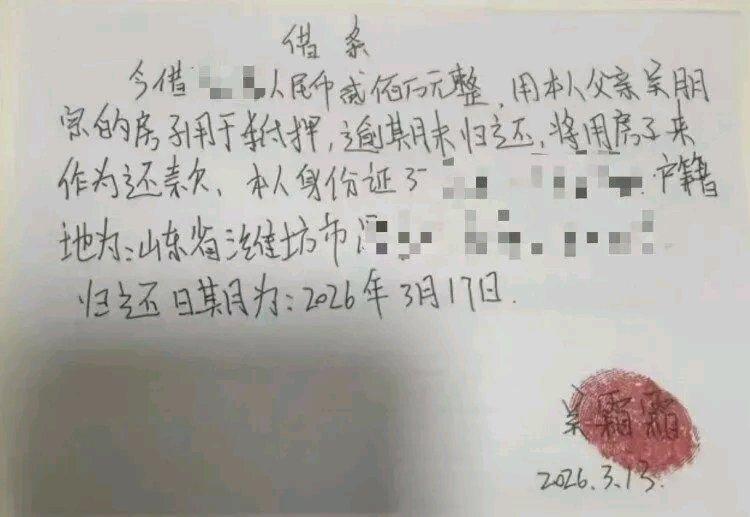 借条
今借 人民币贰佰万元整,用本人父亲吴朋
家的房子用于抵押,逾期未归还,将用房子来
作为还款、本人身份证3 户籍
地为:山东省潍坊市
归还日期为:2026年3月17日.
吴霜霜
2026.3.13